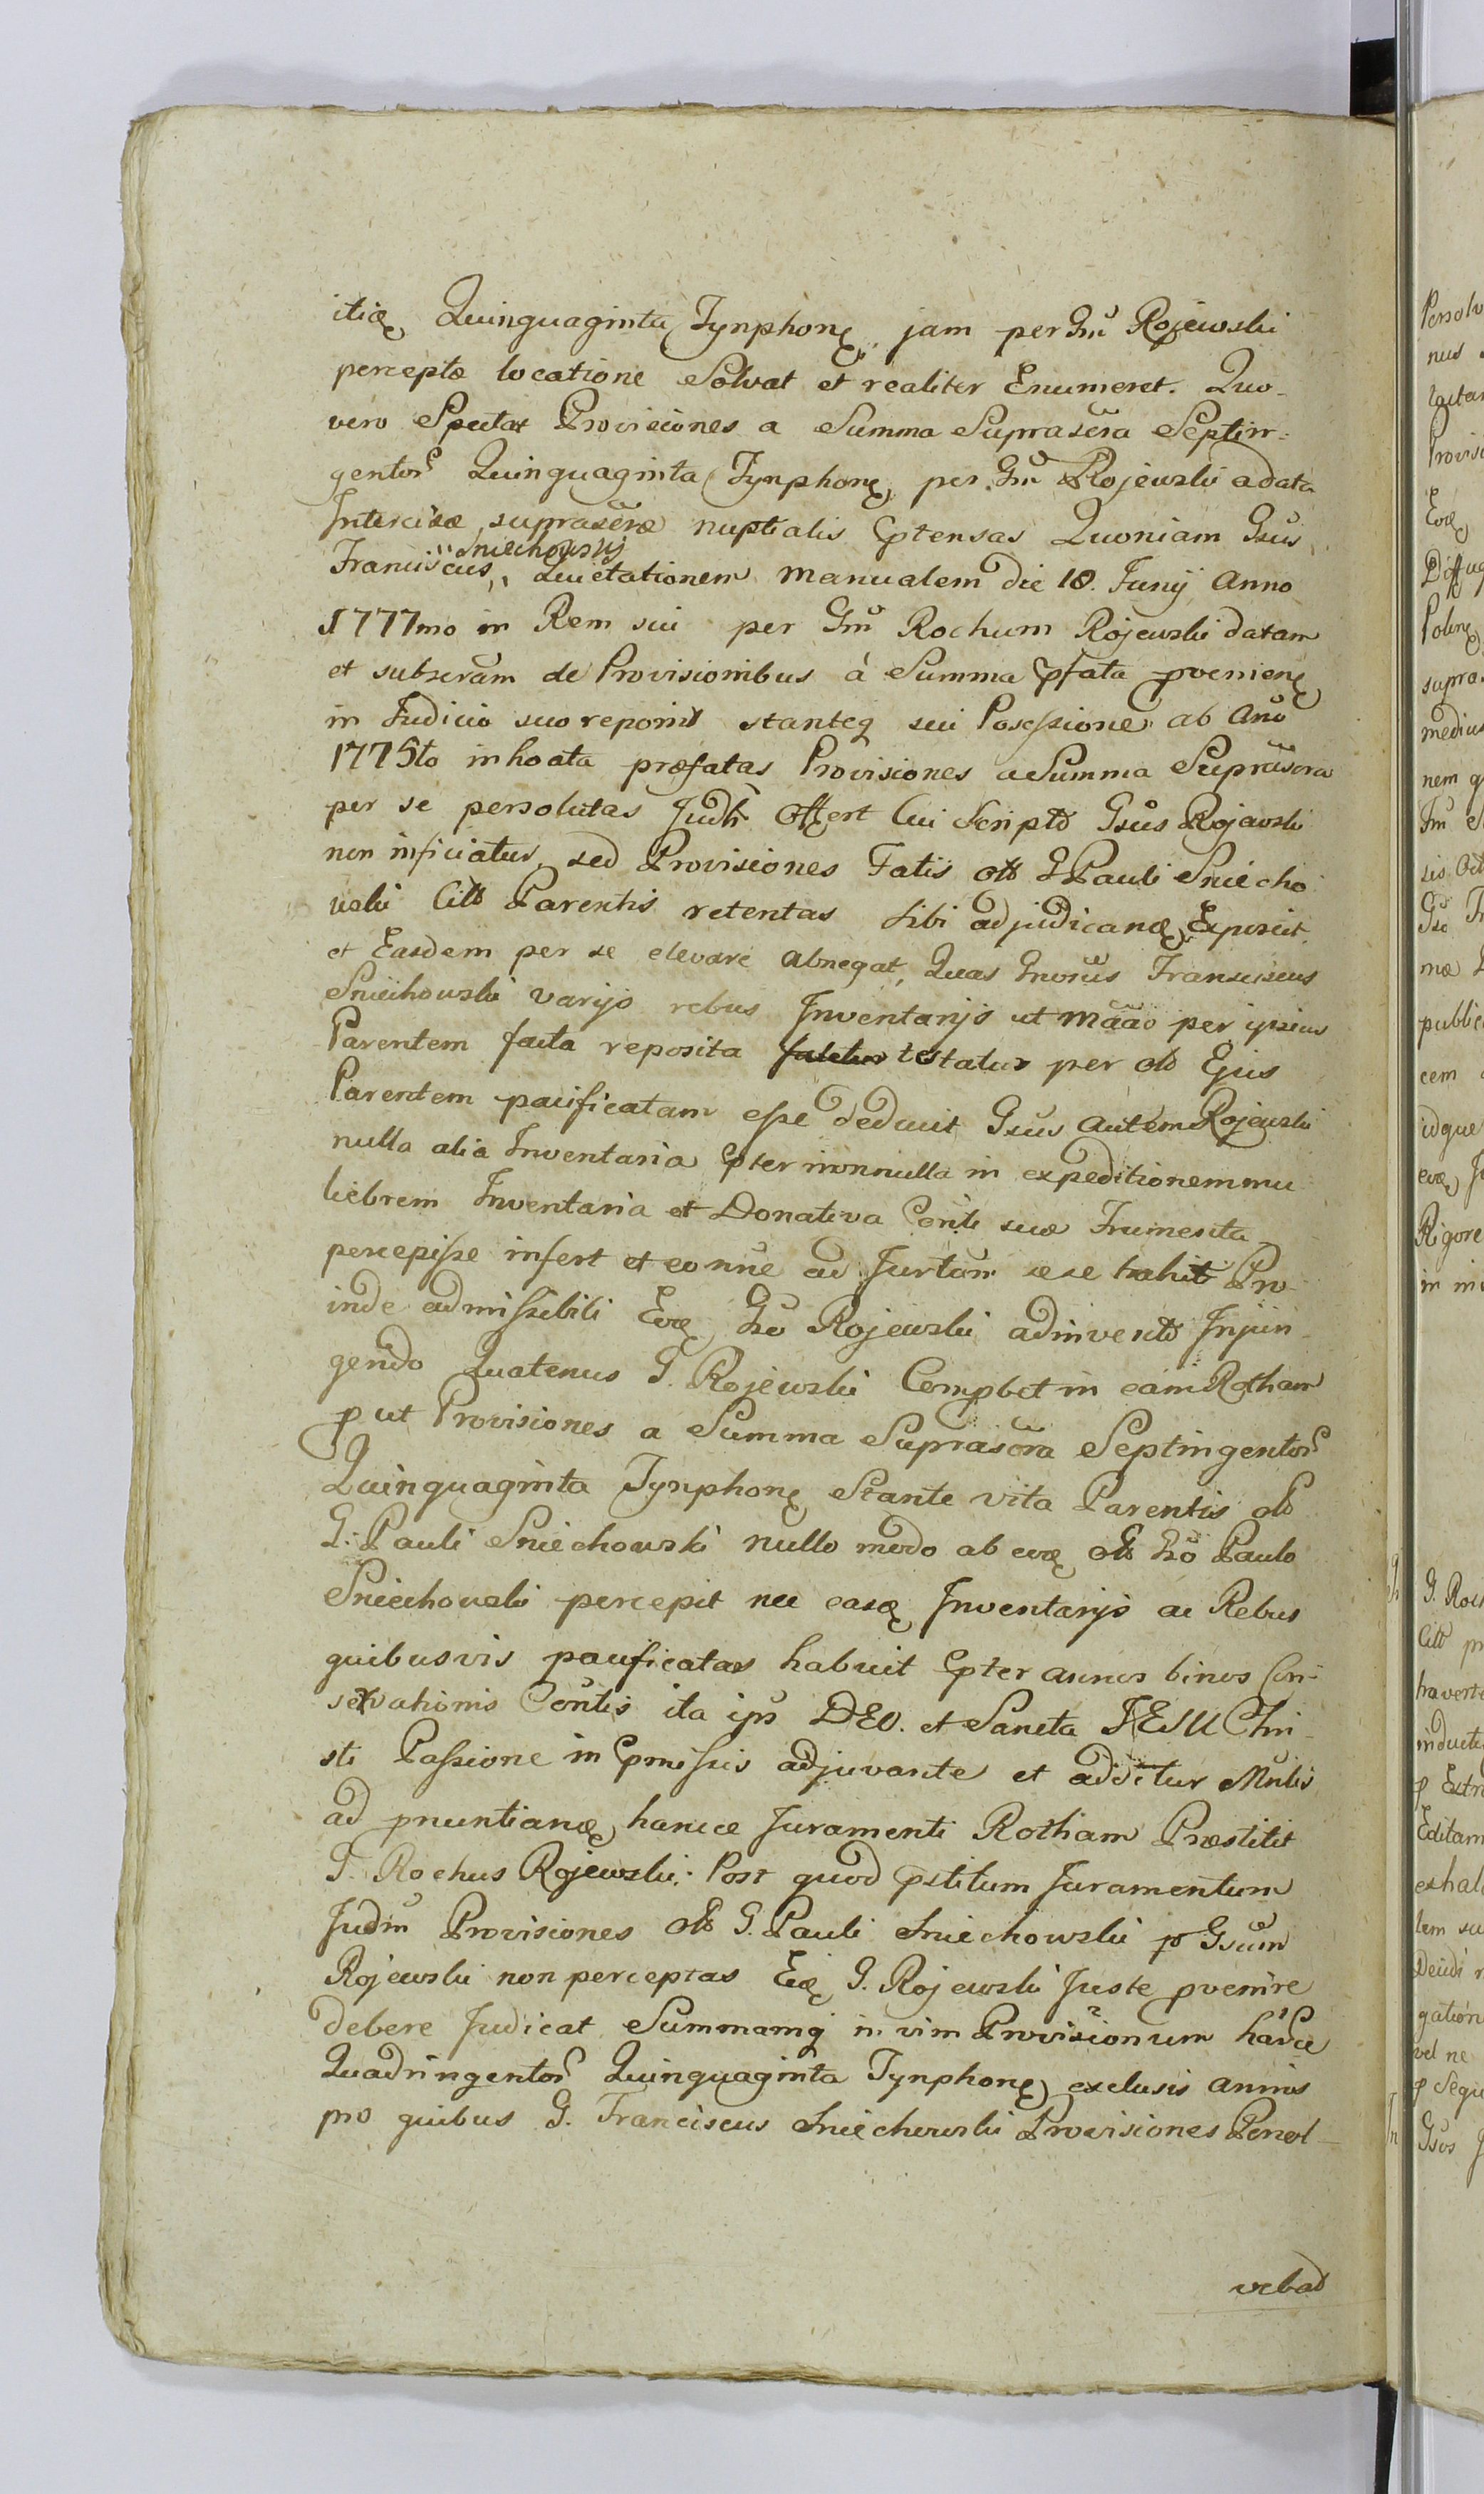 itiæ Quinquaginta Tynphonę jam per Gm̃ Rojewski
perceptæ locatione Solvat et realiter Enumeret. Quo-
vero Spectat Provisiones a Summa Suprascra Septin=
gentor Quinquaginta Tynphonę per Gm̃ Rojewski a data
Intercisæ suprascræ nuptialis ptensas Quoniam Gsus
Franciscus Sniechowski Quietationem manualem die 18. Junij Anno
1777mo in Rem sui per Gm̃ Rochum Rojewski datam
et subscram de Provisionibus à Summa pfata pvenienę
in Judicio suo reponit stanteq sui Possessione ab Año
1775to inhoata præfatas Provisiones a Summa Suprascra
per se persolutas Judh Offert Cui Scripto Gsus Rojewski
non inficiatur, sed Provisiones Fatis olb G Pauli Sniecho
wski Citt Parentis retentas sibi adjudicandę Exposcit
et Easdem per se elevare abnegat, Quas Gnorus Franciscus
Sniechowski varijs rebus Inventarijs ut mããõ per ipsius
Parentem facta reposita testatur per olb Ejus
Parentem pacificatam esse deducit Gsus autem Rojewski
nulla alia Inventaria pter nonnulla in expeditionem mu
liebrem Inventaria et Donativa Conti suæ Frumenta
percepisse infert et eo nne ad Jurtum se se trahit Pro-
inde admissibili Eoę Gso Rojewski adinvento Injun-
gendo Quatenus G. Rojewski Compbet in eam Rotham
put Provisiones a Summa Suprascra Septingentor
Quinquaginta Tynphonę Stante vita Parentis olb
G. Pauli Sniechowski nullo modo ab eoę olb Gso Paulo
Sniechowski percepit nec easę Inventarijs ac Rebus
quibusvis pacificatas habuit pter annos binos Con-
servationis Contis ita ips DEO. et Sancta JESU Chri-
sti Passione in pmissis adjuvante et additur Mntis
ad pnuntianę hance Juramenti Rotham Præstitit
G. Rochus Rojewski. Post quod pstitum Juramentum
Judm Provisiones olb G. Pauli Sniechowski p Gsum
Rojewski non perceptas Eię G. Rojewski Juste pvenire
debere Judicat Summamq in vim Provisionum harce
Quadringentor Quinquaginta Tynphonę exclusis annis
pro quibus G. Franciscus Sniechowski Provisiones Persol-
vebat